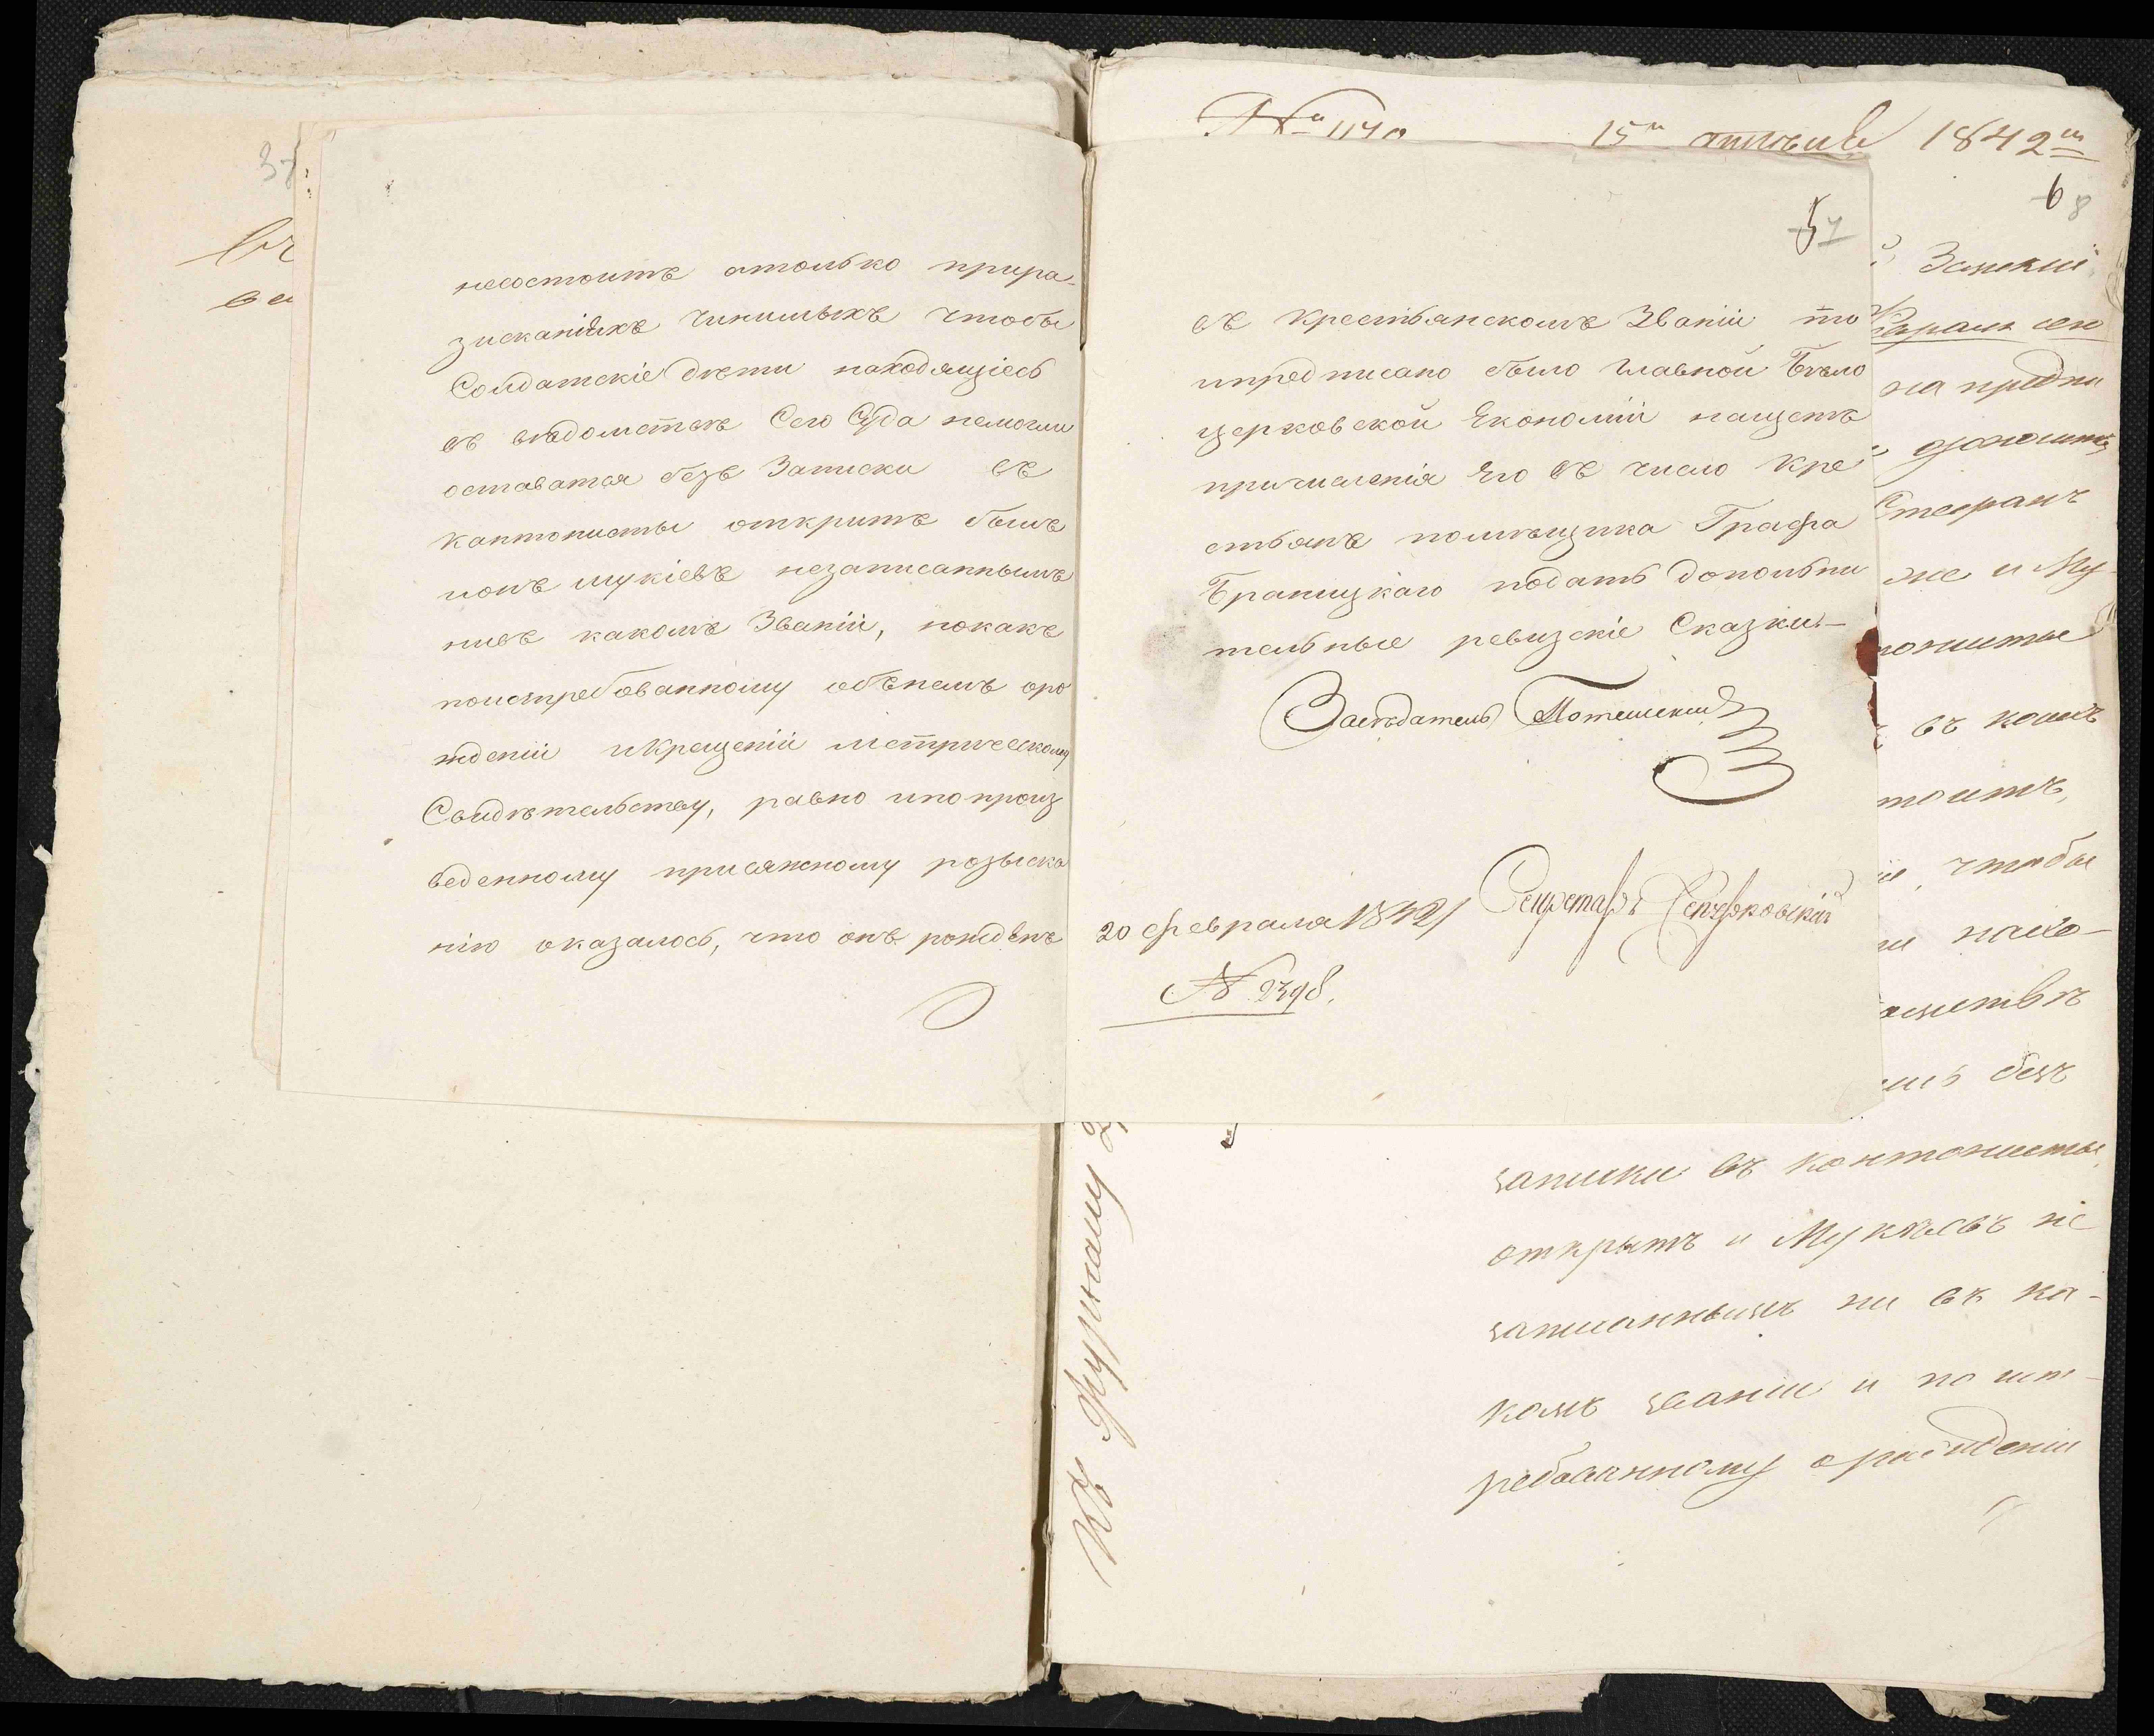 несостоитъ атолько прира-
зисканіяхъ чинимыхъ чтобы
Солдатскіе дѣти находящіесь
въ вѣдомствѣ Сего Суда немогли
оставатся безъ Записки въ
кантонисты открытъ былъ
ионъ мукіевъ незаписаннымъ
нивъ какомъ Званіи, нокакъ
поистребованному обънемъ оро
жденіи икрещеніи метрическому
Свидѣтельству, равно инопроиз
веденному присяжному розыска
нію оказалось, что онъ рожденъ
57
въ крестьянскомъ Званіи то
ипредписано было Главной Бѣло
церковской Економіи нащетъ
причисленія Его въ число Кре
стьянъ помѣщика Графа
Браницкаго подать дополни
тельные ревизскіе Сказки.
Засѣдатель
20 февраля 1842 Секретарь
№ 2398.
№ 1140 15 1842
6 8
на предпи
Стефанъ
же и Му-
въ коихъ
чтобы
нахо-
безъ
записки въ кантонисты
открытъ и Мукіевъ не
записаннымъ ни въ ка-
комъ званіи и по ист-
ребованному о рожденіи
Къ Журналу